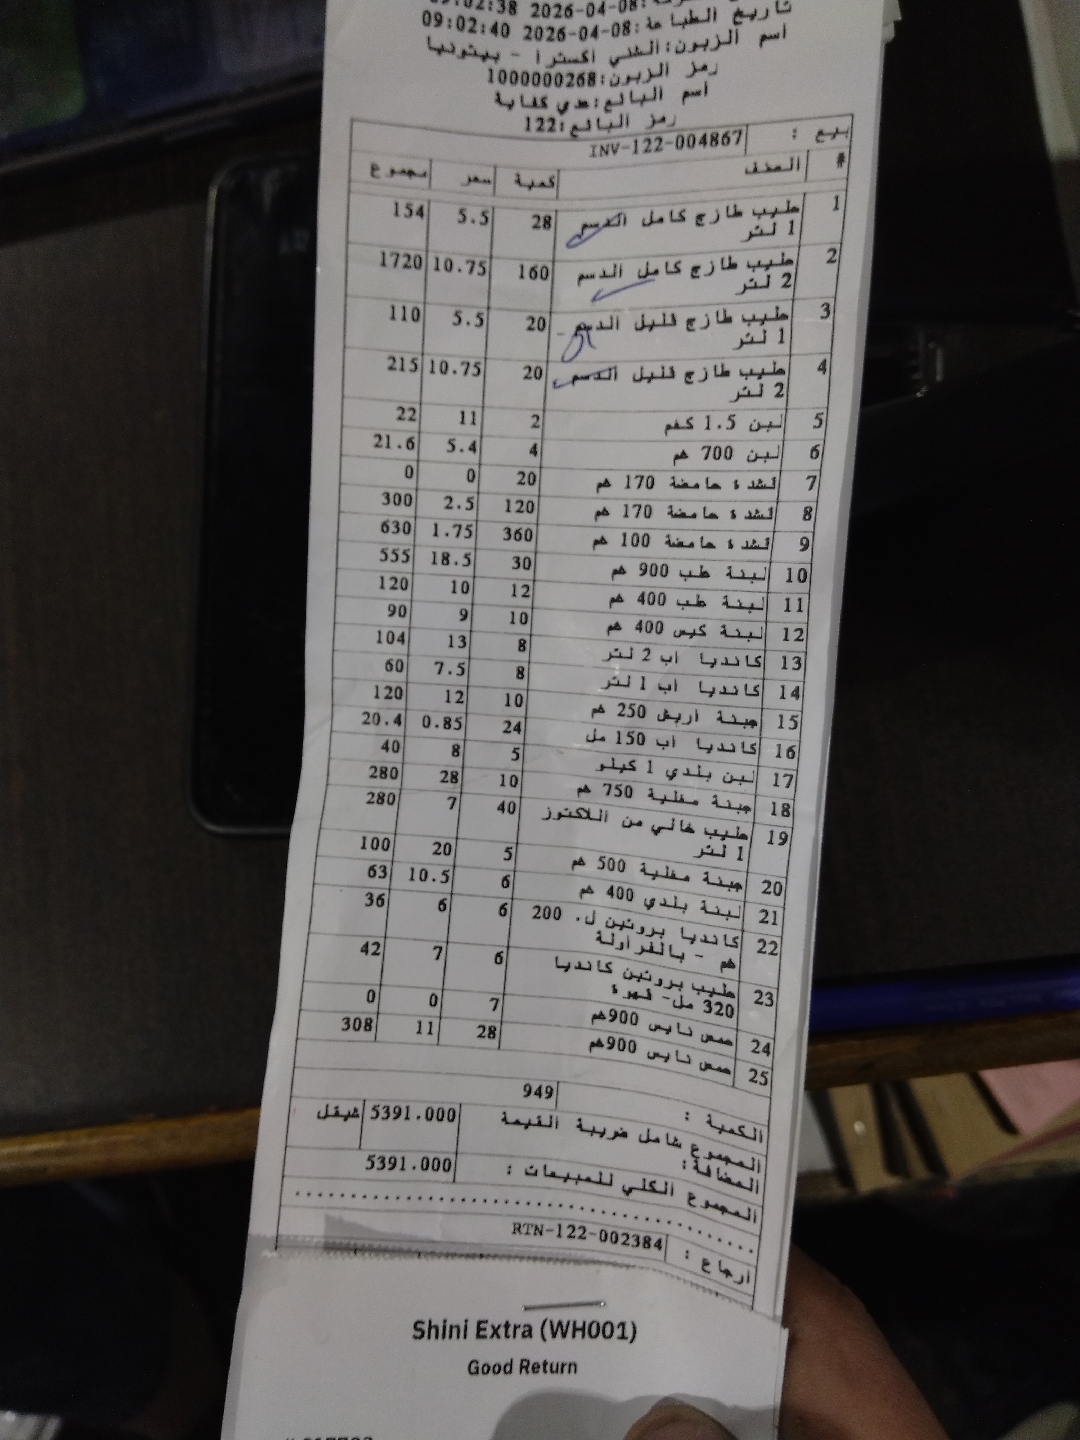 09:02:38 2026-04-08
تاريخ الطباعة: 2026-04-08 09:02:40
اسم الزبون: الشني اكسترا - بيتونيا
رمز الزبون: 1000000268
اسم البائع: عدي كفاية
رمز البائع: 122
بيع : INV-122-004867
# الصنف كمية سعر مجموع
1 حليب طازج كامل الدسم 28 5.5 154
1 لتر
2 حليب طازج كامل الدسم 160 10.75 1720
2 لتر
3 حليب طازج قليل الدسم 20 5.5 110
1 لتر
4 حليب طازج قليل الدسم 20 10.75 215
2 لتر
5 لبن 1.5 كغم 2 11 22
6 لبن 700 غم 4 5.4 21.6
7 قشدة حامضة 170 غم 20 0 0
8 قشدة حامضة 170 غم 120 2.5 300
9 قشدة حامضة 100 غم 360 1.75 630
10 لبنة علب 900 غم 30 18.5 555
11 لبنة علب 400 غم 12 10 120
12 لبنة كيس 400 غم 10 9 90
13 كانديا اب 2 لتر 8 13 104
14 كانديا اب 1 لتر 8 7.5 60
15 جبنة اريش 250 غم 10 12 120
16 كانديا اب 150 مل 24 0.85 20.4
17 لبن بلدي 1 كيلو 5 8 40
18 جبنة مغلية 750 غم 10 28 280
19 حليب خالي من اللاكتوز 40 7 280
1 لتر
20 جبنة مغلية 500 غم 5 20 100
21 لبنة بلدي 400 غم 6 10.5 63
22 كانديا بروتين ل. 200 6 6 36
غم - بالفراولة
23 حليب بروتين كانديا 6 7 42
320 مل- قهوة
24 حمص نايس 900غم 7 0 0
25 حمص نايس 900غم 28 11 308
الكمية : 949
المجموع شامل ضريبة القيمة 5391.000 شيقل
المضافة:
المجموع الكلي للمبيعات : 5391.000
ارجاع : RTN-122-002384
Shini Extra (WH001)
Good Return